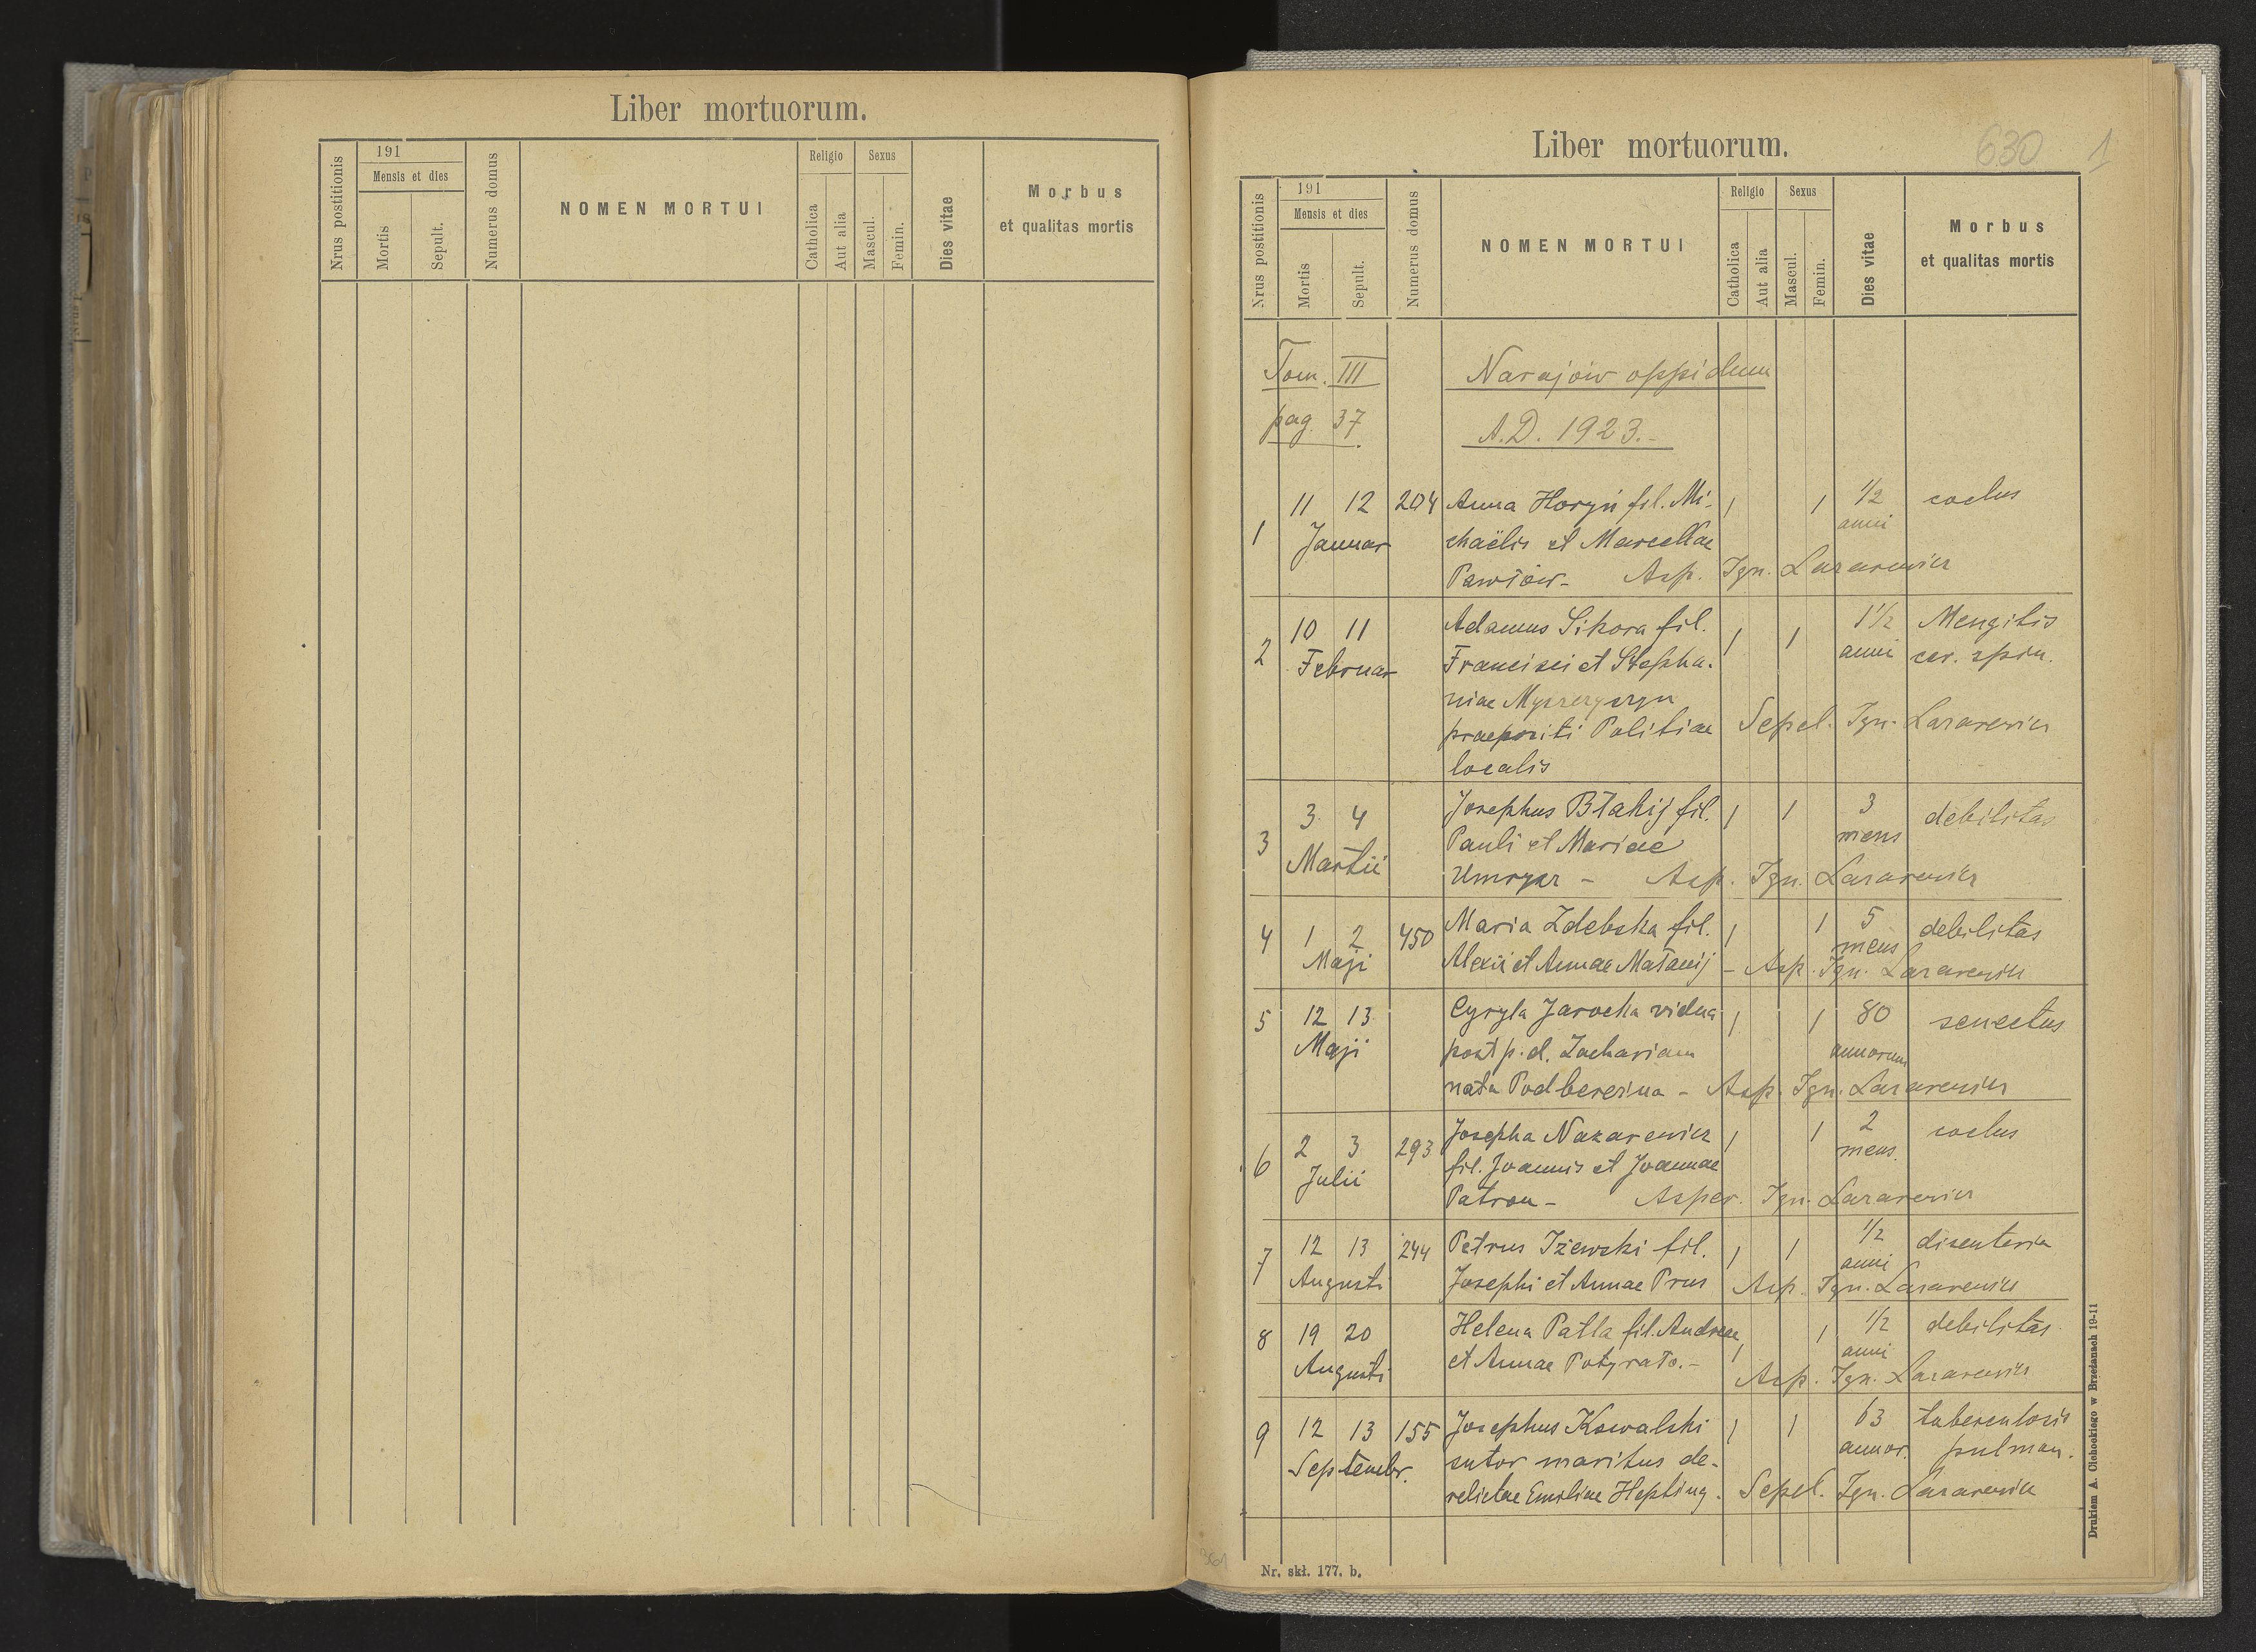 Liber mortuorum.
Nrus postitionis
191
Mensis et dies
Mortis
Sepult.
Numerus domus
NOMEN MORTUI
Religio
Catholica
Aut alia
Sexus
Mascul.
Femin.
Dies vitae
Morbus
et qualitas mortis
Liber mortuorum.
630 1
Nrus postitionis
191
Mensis et dies
Mortis
Sepult.
Numerus domus
NOMEN MORTUI
Religio
Catholica
Aut alia
Sexus
Mascul.
Femin.
Dies vitae
Morbus
et qualitas mortis
Tom. III Narajów oppidum
pag. 37 A.D. 1923.-
11 12 204 Anna Horyń fil. Mi- 1 1 1/2 coclus
1 Januar chaëlis et Marcellae anni
Pawłów- Asp. Ign. Lazarewicz
10 11 Adamus Sikora fil. 1 1 1 1/2 Mengitis
2 Februar Francisci et Stepha- anni cer. spin.
niae
praepositi Politiae Sepel. Ign. Lazarewicz
localis
3 4 Josephus Błahij fil. 1 1 3 debilitas
3 Martii Pauli et Mariae mens
Umrysz - Asp. Ign. Lazarewicz
4 1 2 450 Maria Zdebska fil. 1 1 5 debilitas
Maji Alexii et Annae Matanij - Asp. Ign. Lazarewicz mens
5 12 13 Cyryla Jarocka vidua 1 1 80 senectus
Maji post p. d. Zachariam annorum
nata Podberezna - Asp. Ign. Lazarewicz
6 2 3 293 Josepha Nazarewicz 1 1 2 coclus
Julii fil. Joannis et Joannae mens.
Patron - Asper. Ign. Lazarewicz
7 12 13 244 Petrus Iżewski fil. 1 1 1/2 disenteria
Augusti Josephi et Annae Prus anni Asp. Ign. Lazarewicz
8 19 20 Helena Patla fil. Andreae 1 1 1/2 debilitas
Augusti et Annae Potyrało.- anni
Asp. Ign. Lazarewicz
9 12 13 155 Josephus Kowalski 1 1 63 tuberculosis
Septembr. sutor maritus de- annor. pulmon.
relictae Emiliae Hepting. Sepel. Ign. Lazarewicz
Nr. skł. 177. b.
361
Drukiem A. Cichockiego w Brzeżanach 19-11